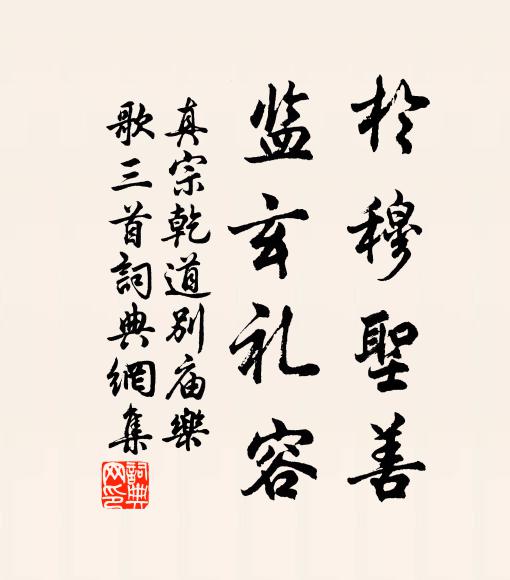 於穆聖善
监玄礼容
真宗乾道別庙樂
歌三首詞典網集
詞典网印